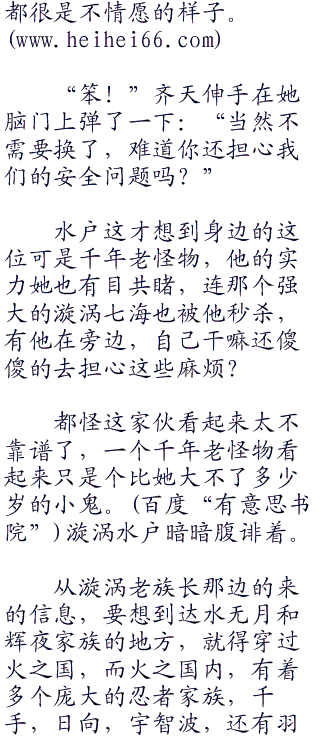 都很是不情愿的样子。
(www.heihei66.com)
“笨！”齐天伸手在她
脑门上弹了一下：“当然不
需要换了，难道你还担心我
们的安全问题吗？”
水户这才想到身边的这
位可是千年老怪物，他的实
力她也有目共睹，连那个强
大的漩涡七海也被他秒杀，
有他在旁边，自己干嘛还傻
傻的去担心这些麻烦？
都怪这家伙看起来太不
靠谱了，一个千年老怪物看
起来只是个比她大不了多少
岁的小鬼。(百度“有意思书
院”)漩涡水户暗暗腹诽着。
从漩涡老族长那边的来
的信息，要想到达水无月和
辉夜家族的地方，就得穿过
火之国，而火之国内，有着
多个庞大的忍者家族，千
手，日向，宇智波，还有羽